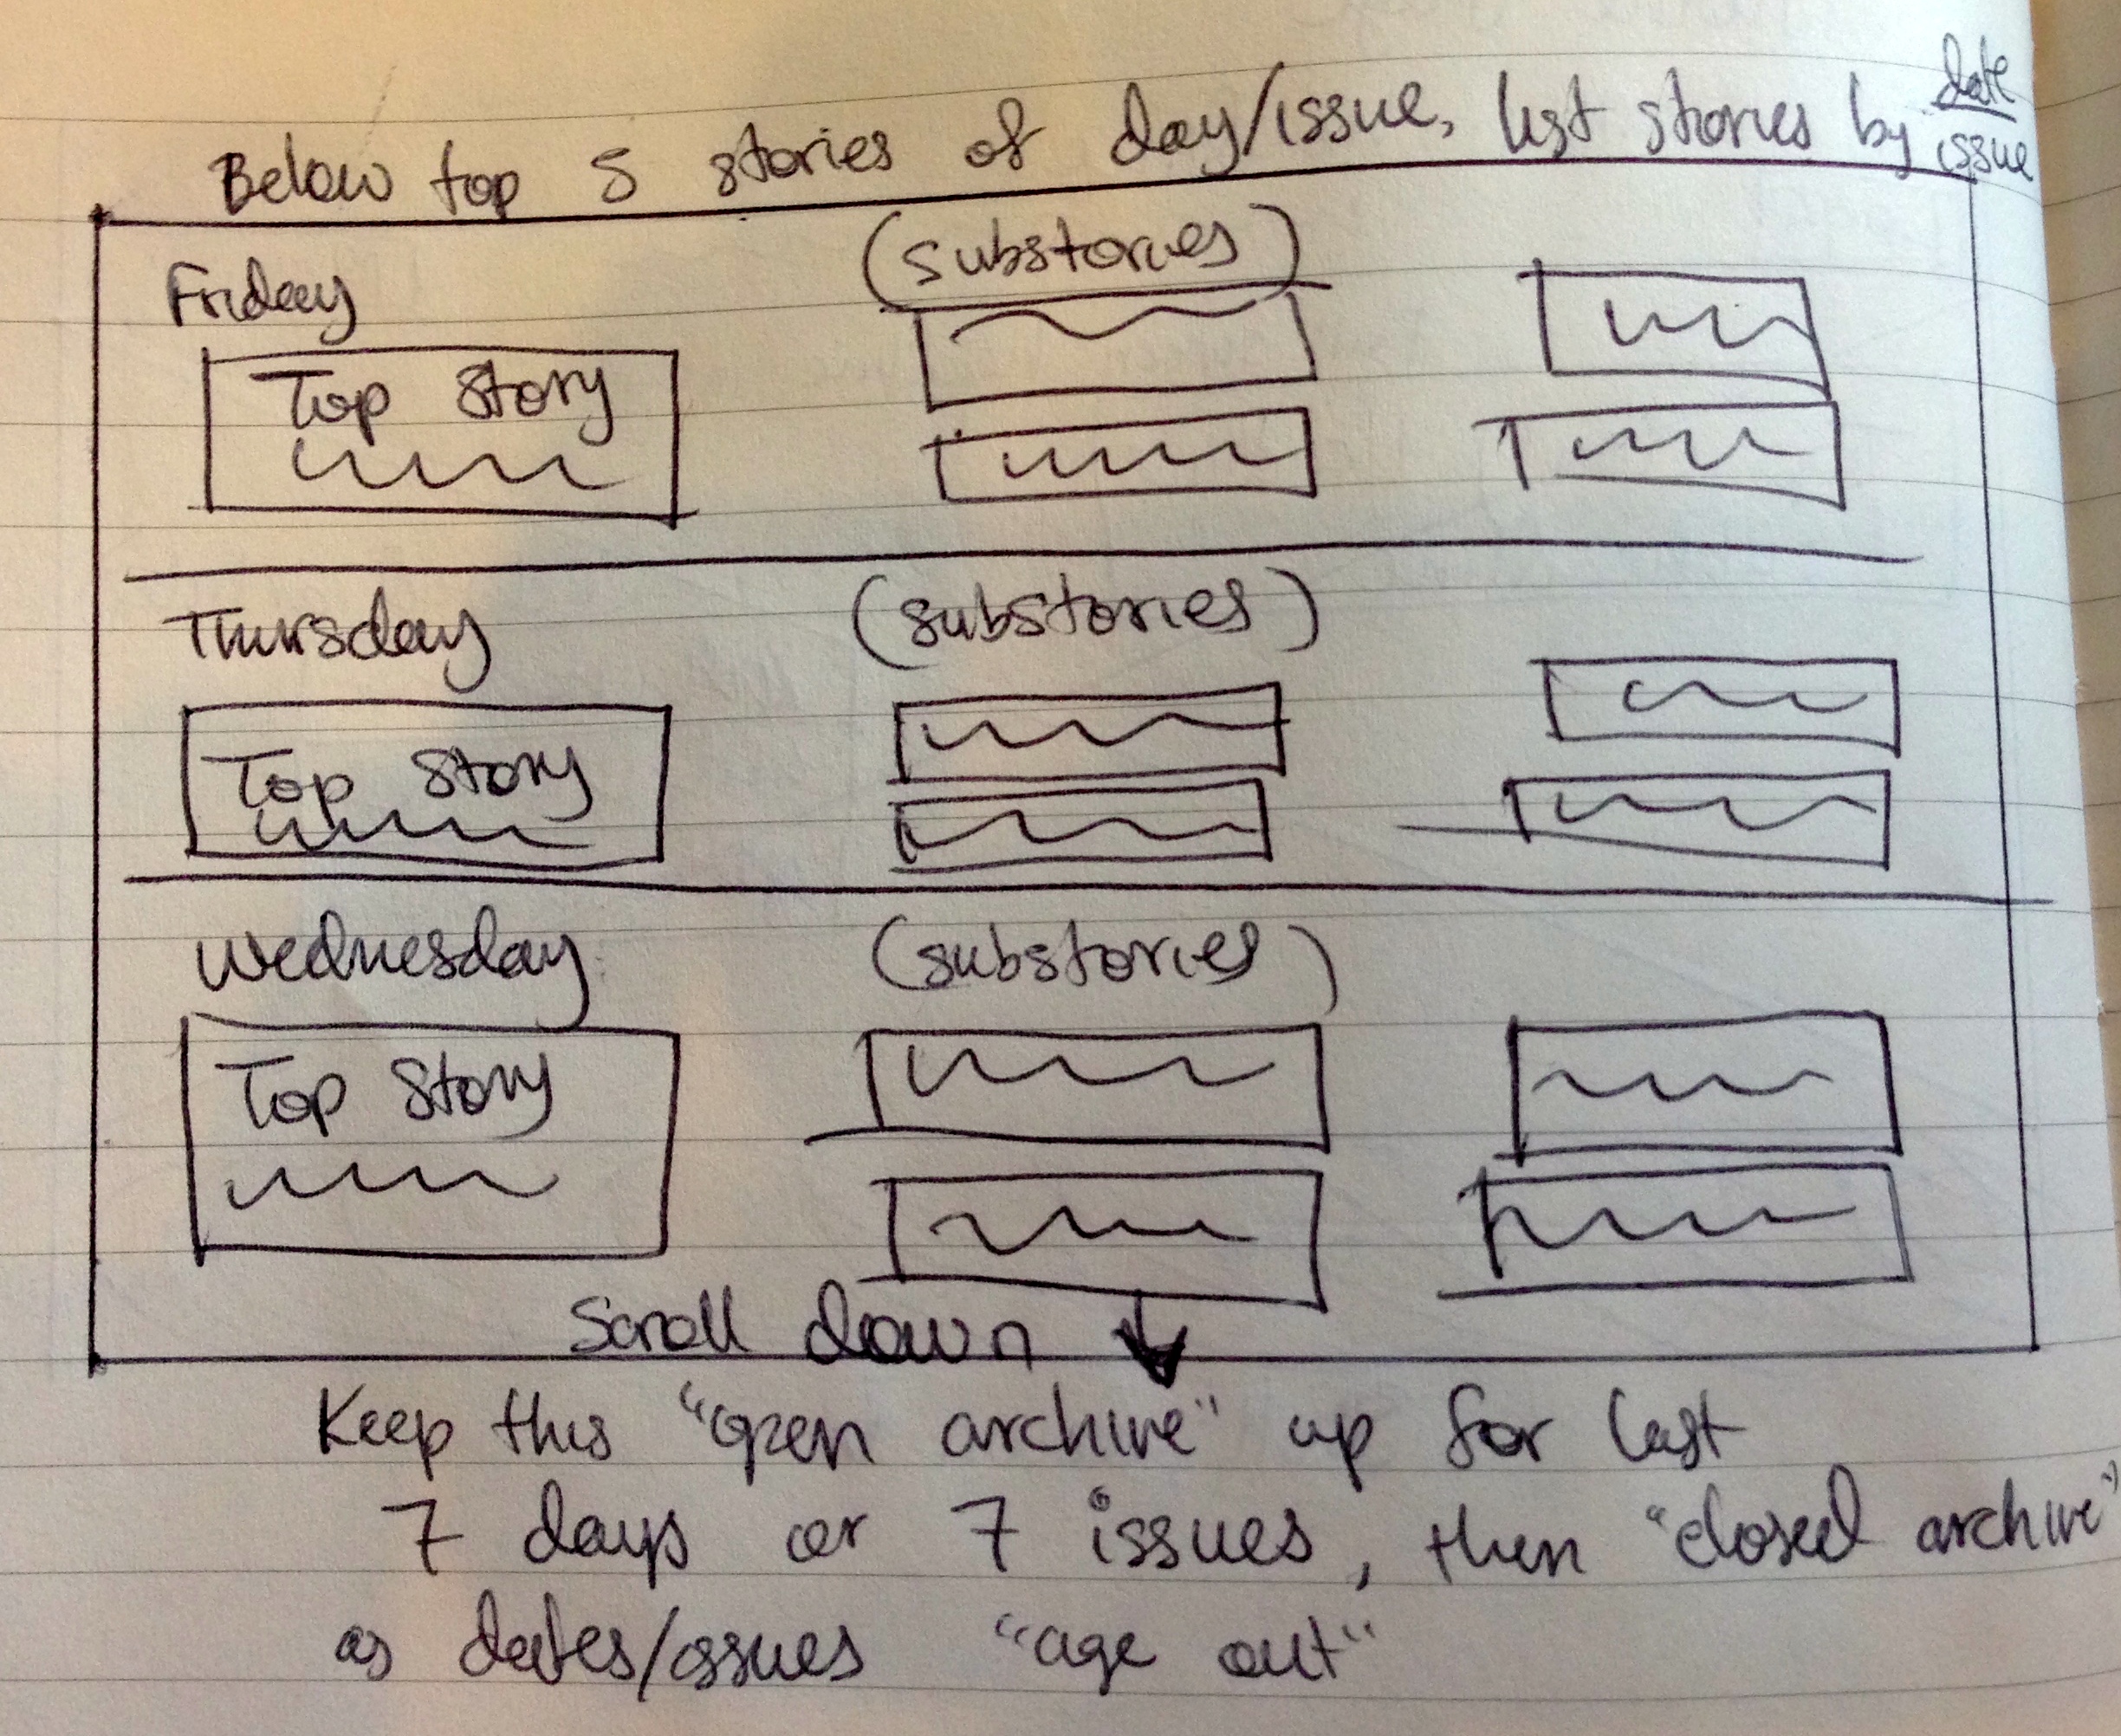 Below top 5 stories of day/issue, list stories by date/issue
Friday (substories)
Top Story
Thursday (substories)
Top Story
Wednesday (substories)
Top Story
Scroll down
Keep this "open archive" up for last
7 days or 7 issues, then "closed archive"
as dates/issues "age out"